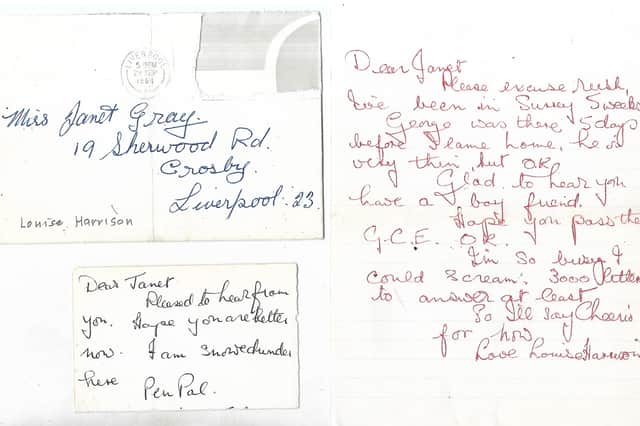 LIVERPOOL
5 PM
SEP
Miss Janet Gray.
19 Sherwood Rd.
Crosby.
Liverpool. 23.
Louise Harrison
Dear Janet
Pleased to hear from
you. Hope you are better
now. I am snowed under
here Pen Pal.
Dear Janet
Please excuse rush,
I've been in Surrey 5 weeks
George was there 5 days
before I came home, he is
very thin, but OK.
Glad to hear you
have a boy friend.
Hope you pass the
G.C.E. OK.
I'm so busy I
could scream. 3000 letters
to answer at least
So I'll say Cheerio
for now
Love Louise Harrison